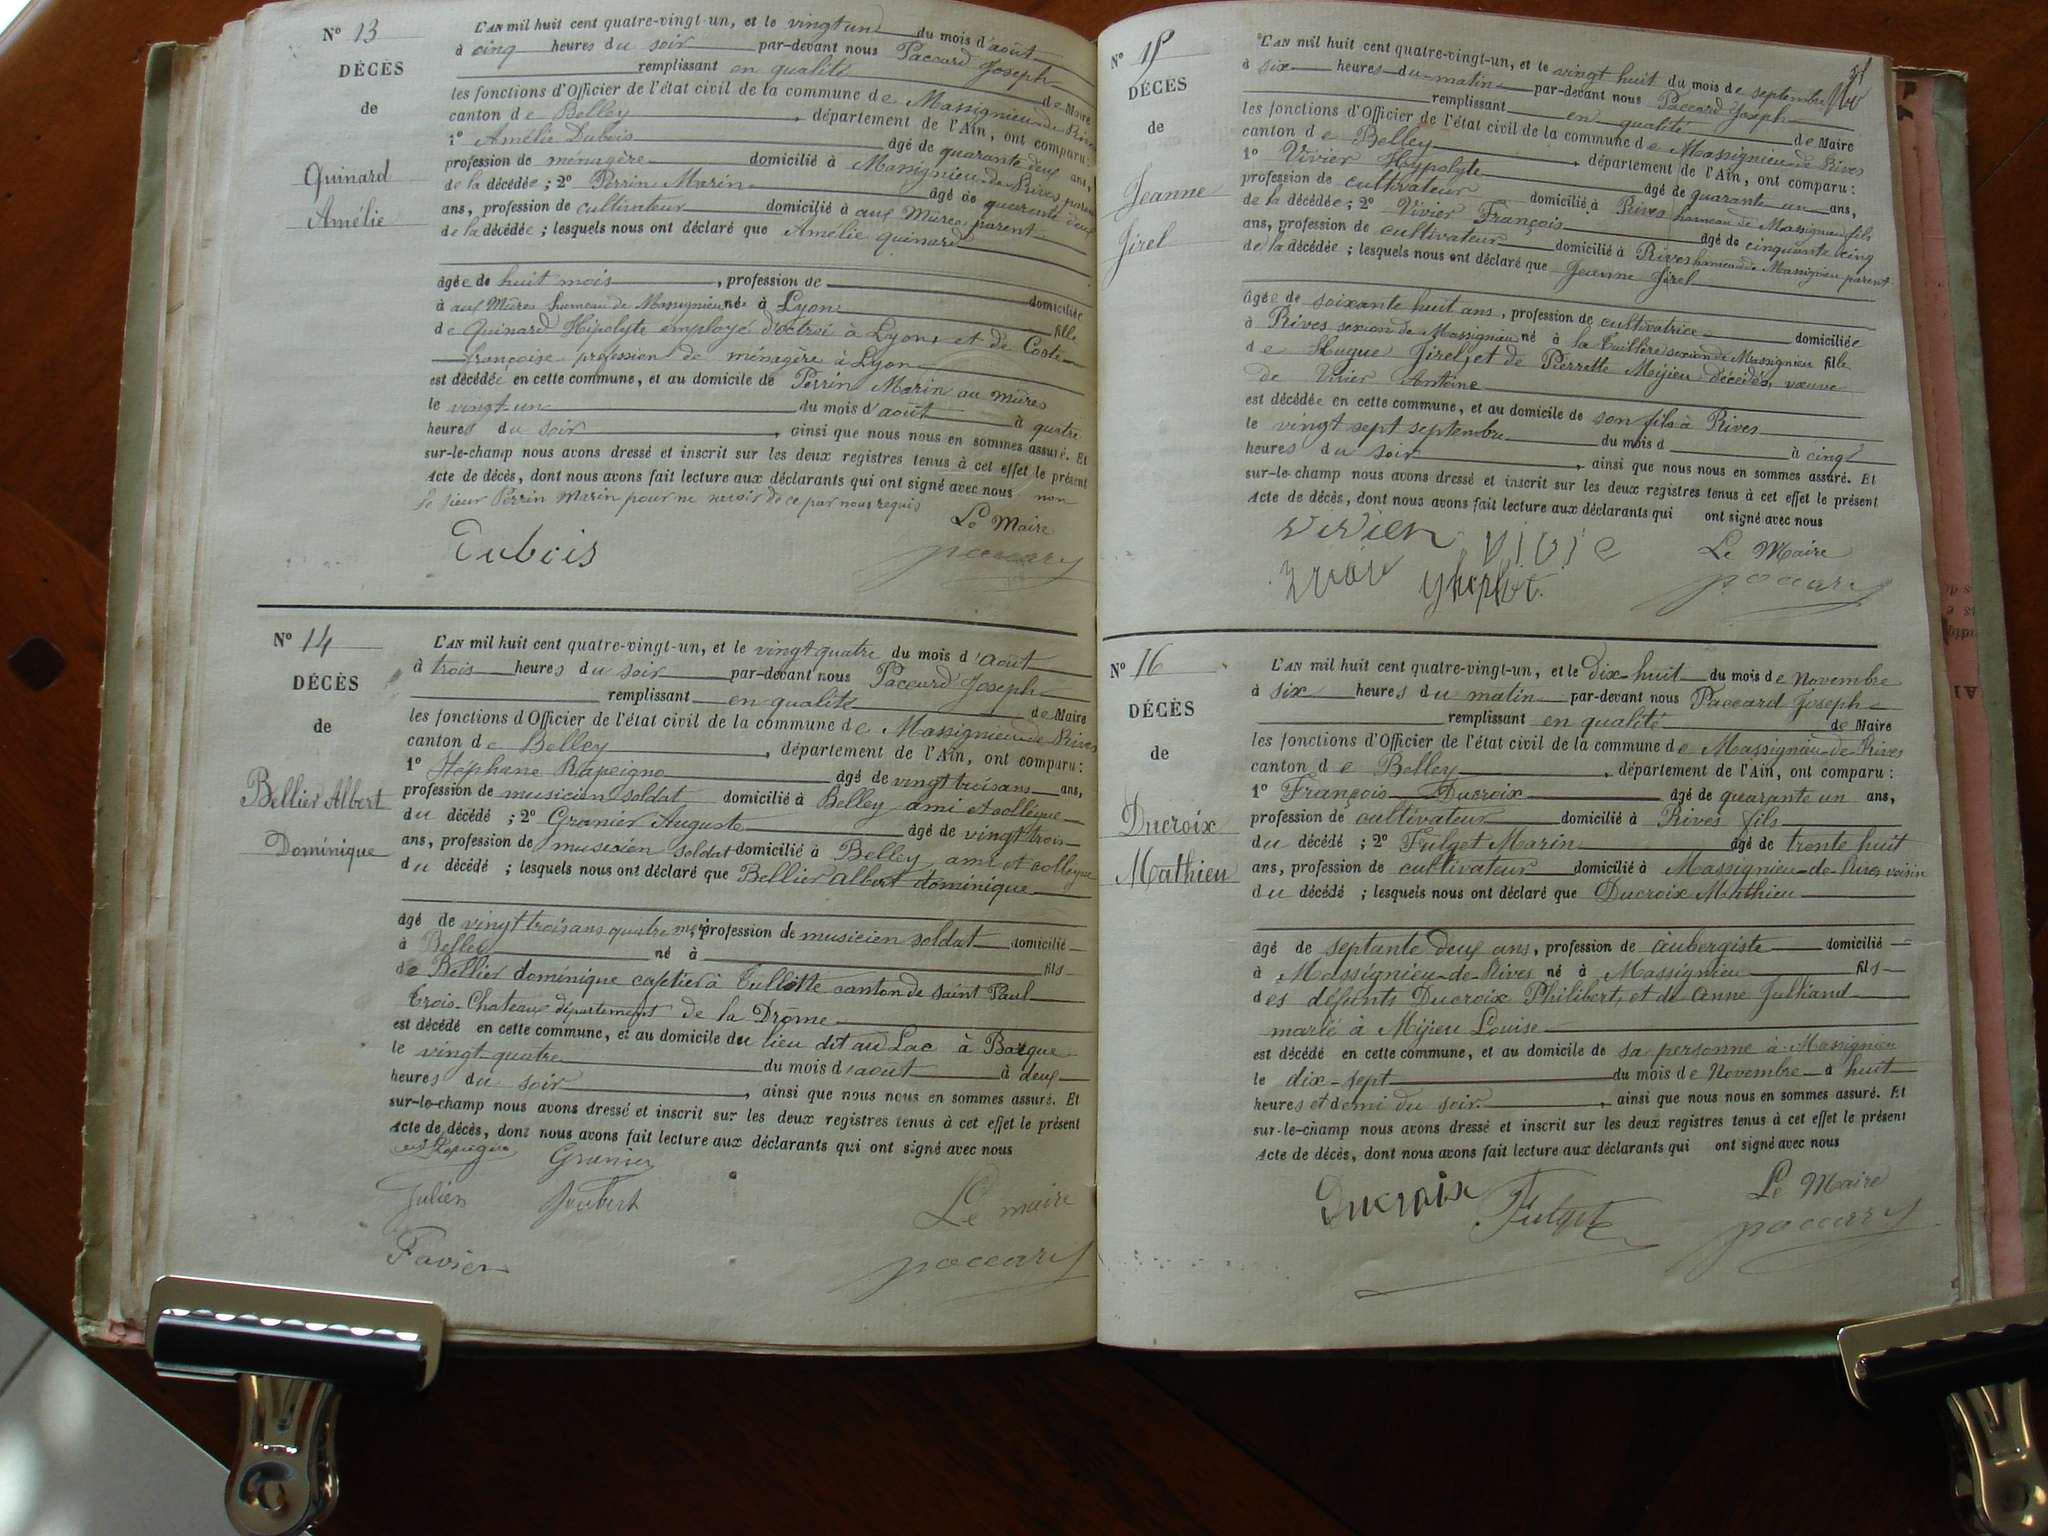 N° 13
DÉCÈS
de
Quinard
Amélie
L'AN mil huit cent quatre-vingt-un, et le vingt un du mois d'août
à cinq heures du soir par-devant nous Paccard Joseph
remplissant en qualité de Maire
les fonctions d'Officier de l'état civil de la commune de Massignieu-de-Rives
canton de Belley, département de l'Ain, ont comparu:
1° Amélie Dubois âgé de quarante deux ans,
profession de ménagère domicilié à Massignieu-de-Rives, parent
de la décédée; 2° Perrin Marin âgé de quarante deux
ans, profession de cultivateur domicilié à aux Mures parent
de la décédée; lesquels nous ont déclaré que Amélie Quinard
âgée de huit mois, profession de domiciliée
à aux Mures hameau de Massignieu née à Lyon fille
de Quinard Hipolyte employé d'octroi à Lyon, et de Coste
françoise profession de ménagère à Lyon
est décédée en cette commune, et au domicile de Perrin Marin au mûres
le vingt-un du mois d'août à quatre
heures du soir, ainsi que nous nous en sommes assuré. Et
sur-le-champ nous avons dressé et inscrit sur les deux registres tenus à cet effet le présent
Acte de décès, dont nous avons fait lecture aux déclarants qui ont signé avec nous non
le sieur Perrin Marin pour ne savoir de ce par nous requis
Le Maire
Dubois paccard
N° 14
DÉCÈS
de
Bellier Albert
Dominique
L'AN mil huit cent quatre-vingt-un, et le vingt quatre du mois d'août
à trois heures du soir par-devant nous Paccard Joseph
remplissant en qualité de Maire
les fonctions d'Officier de l'état civil de la commune de Massignieu-de-Rives
canton de Belley, département de l'Ain, ont comparu:
1° Stéphane Rapeigno âgé de vingt trois ans ans,
profession de musicien soldat domicilié à Belley ami et collègue
du décédé; 2° Granier Auguste âgé de vingt trois
ans, profession de musicien soldat domicilié à Belley ami et collègue
du décédé; lesquels nous ont déclaré que Bellier Albert dominique
âgé de vingt trois ans quatre mois, profession de musicien soldat domicilié
à Belley né à fils
de Bellier dominique cafetier à Tullette canton de Saint Paul
trois-Chateaux département de la Drome
est décédé en cette commune, et au domicile du lieu dit au Lac à Barque
le vingt quatre du mois d'août à deux
heures du soir, ainsi que nous nous en sommes assuré. Et
sur-le-champ nous avons dressé et inscrit sur les deux registres tenus à cet effet le présent
Acte de décès, dont nous avons fait lecture aux déclarants qui ont signé avec nous
Granier
Julien Joubert Le maire
Favier paccard
N° 15
DÉCÈS
de
Jeanne
Jirel
L'AN mil huit cent quatre-vingt-un, et le vingt huit du mois de septembre
à six heures du matin par-devant nous Paccard Joseph
remplissant en qualité de Maire
les fonctions d'Officier de l'état civil de la commune de Massignieu-de-Rives
canton de Belley, département de l'Ain, ont comparu:
1° Vivier Hypolyte âgé de quarante un ans,
profession de cultivateur domicilié à Rives hameau de Massignieu fils
de la décédée; 2° Vivier François âgé de cinquante cinq
ans, profession de cultivateur domicilié à Rives hameau de Massignieu parent
de la décédée; lesquels nous ont déclaré que Jeanne Jirel
âgée de soixante huit ans, profession de cultivatrice domiciliée
à Rives sexion de Massignieu né à la Tuillère sexion de Massignieu fille
de Hugue Jirel, et de Pierrette Mijieu décédés, vœuve
de Vivier Antoine
est décédée en cette commune, et au domicile de son fils à Rives
le vingt sept septembre du mois d à cinq
heures du soir, ainsi que nous nous en sommes assuré. Et
sur-le-champ nous avons dressé et inscrit sur les deux registres tenus à cet effet le présent
Acte de décès, dont nous avons fait lecture aux déclarants qui ont signé avec nous
Le Maire
paccard
N° 16
DÉCÈS
de
Ducroix
Mathieu
L'AN mil huit cent quatre-vingt-un, et le Dix-huit du mois de Novembre
à six heures du matin par-devant nous Paccard Joseph
remplissant en qualité de Maire
les fonctions d'Officier de l'état civil de la commune de Massignieu-de-Rives
canton de Belley, département de l'Ain, ont comparu:
1° François Ducroix âgé de quarante un ans,
profession de cultivateur domicilié à Rives fils
du décédé; 2° Fulget Marin âgé de trente huit
ans, profession de cultivateur domicilié à Massignieu-de-Rives voisin
du décédé; lesquels nous ont déclaré que Ducroix Mathieu
âgé de septante deux ans, profession de aubergiste domicilié
à Massignieu-de-Rives né à Massignieu fils
des défunts Ducroix Philibert, et de Anne Julliand
marié à Mijieu Louise
est décédé en cette commune, et au domicile de sa personne à Massignieu
le dix-sept du mois de Novembre à huit
heures et demi du soir, ainsi que nous nous en sommes assuré. Et
sur-le-champ nous avons dressé et inscrit sur les deux registres tenus à cet effet le présent
Acte de décès, dont nous avons fait lecture aux déclarants qui ont signé avec nous
Le Maire
Ducroix Fulget paccard